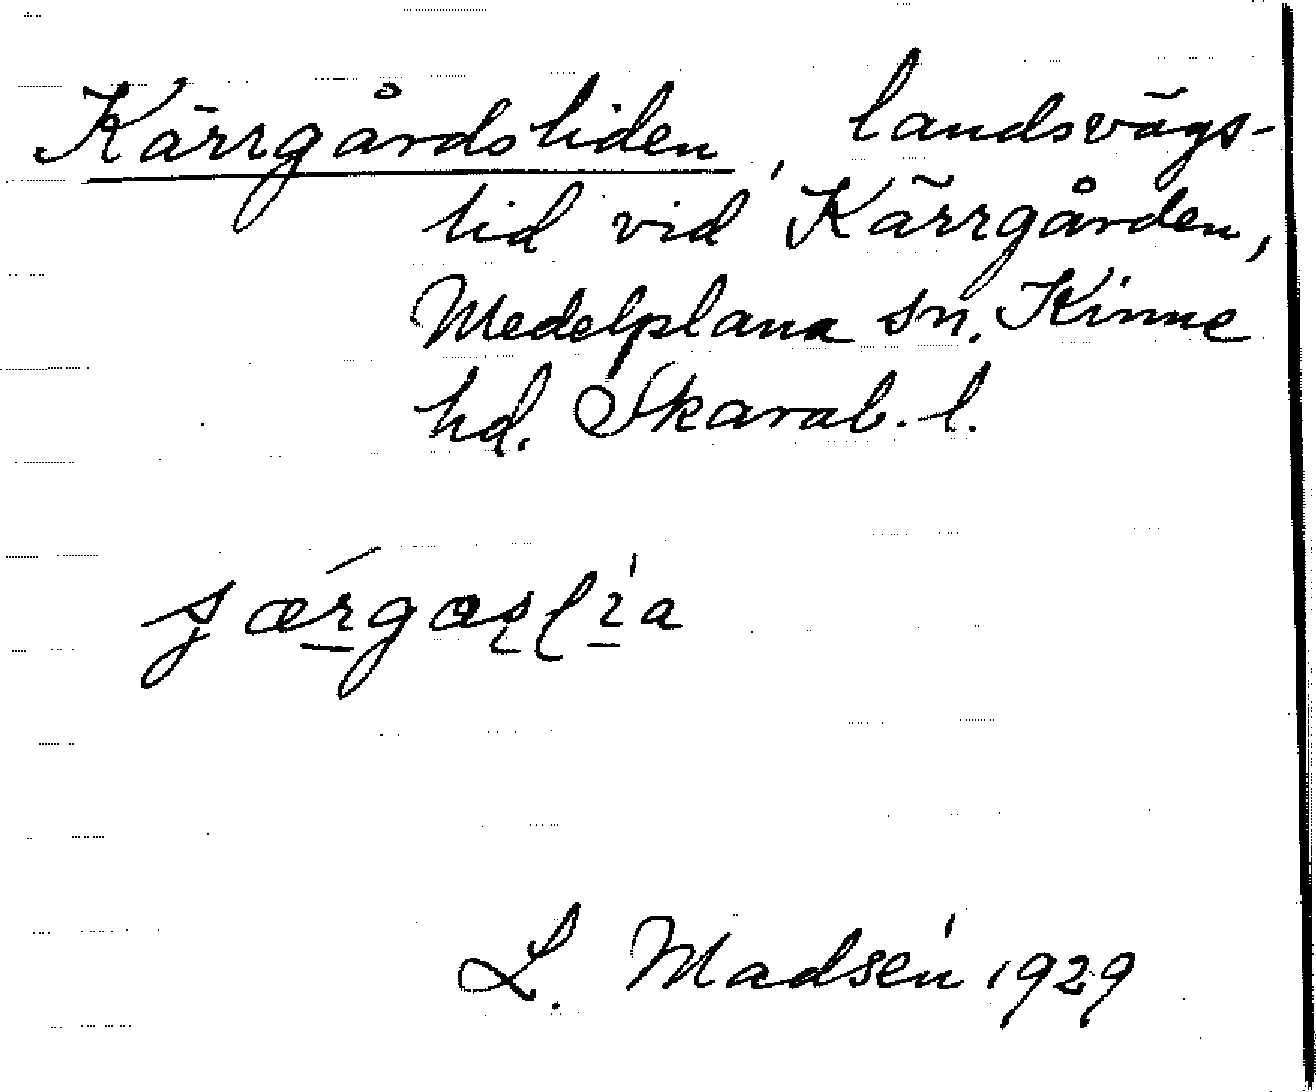 Kärrgårdsliden, landsvägs-
lid vid Kärrgården,
Medelplana sn. Kinne
hd. Skarab. l.
L. Madsén 1929